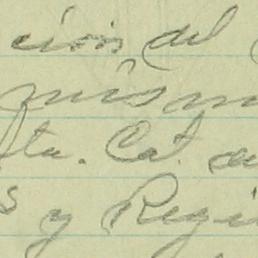 ción del
mism
Sta. Cat. de
s y Regi